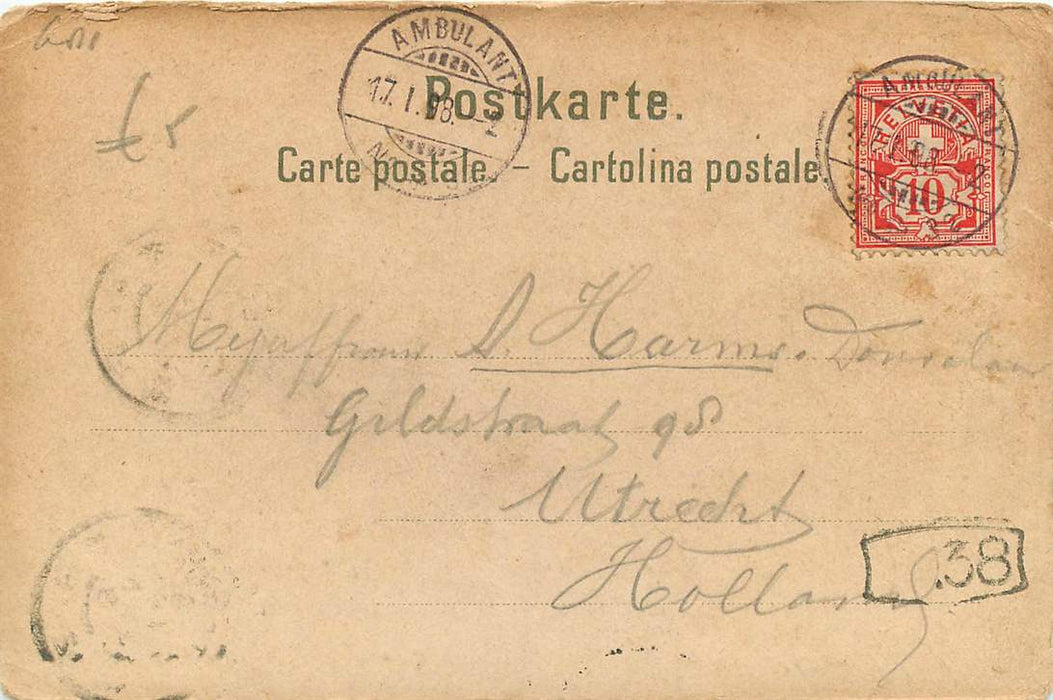 AMBULANT
17.I.98.-2
№
£5
Postkarte.
Carte postale. – Cartolina postale
AMBULANT
HELVETIA
FRANCO
10
Mejuffrouw S. Harms.
Gildstraat 98
Utrecht
Holland
38